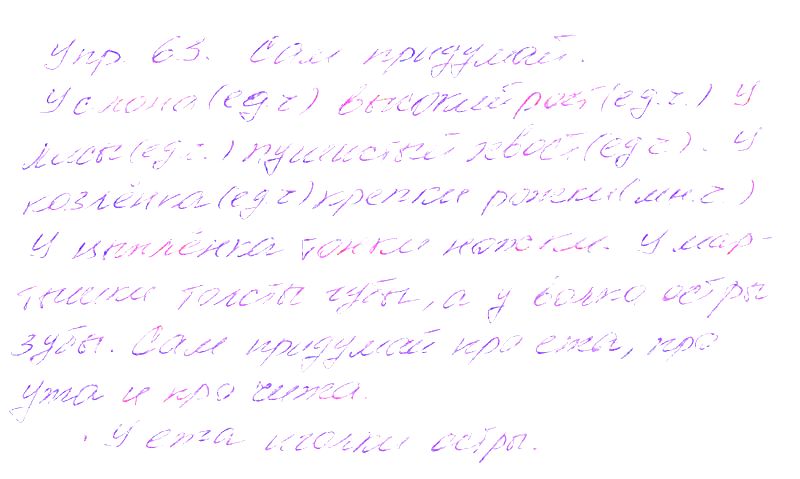 Упр. 63. Сам придумай.
У слона (ед.ч) высокий рост (ед.ч.) У
лисы (ед.ч.) пушистый хвост (ед ч.). У
козлёнка (ед.ч) крепки рожки (мн.ч.)
У цыплёнка тонки ножки. У мар-
тышки толсты губы, а у волка остры
зубы. Сам придумай про ежа, про
ужа и про чижа.
У ежа иголки остры.